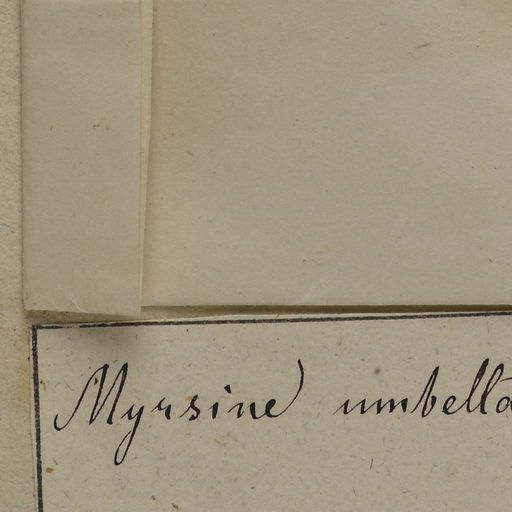 Myrsine umbella